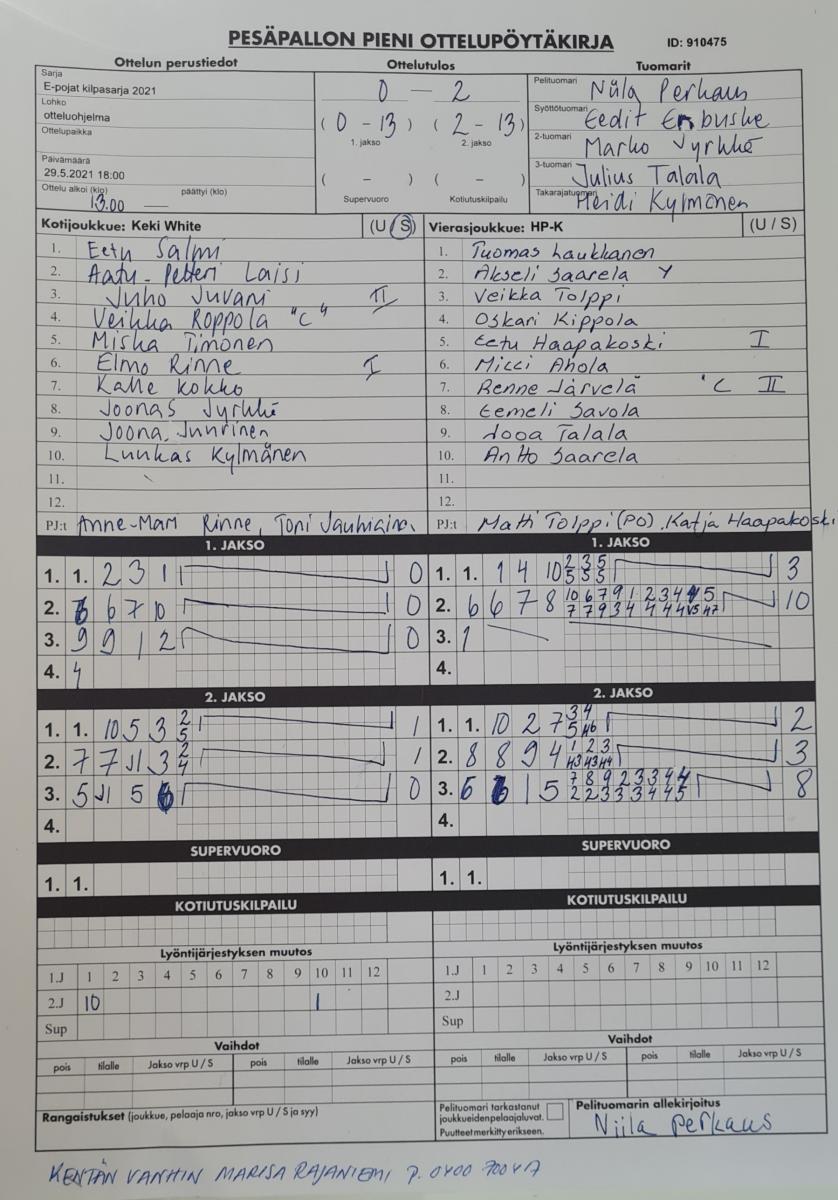 PESÄPALLON PIENI OTTELUPÖYTÄKIRJA ID: 910475
Ottelun perustiedot Ottelutulos Tuomarit
Sarja
E-pojat kilpasarja 2021
Lohko
otteluohjelma
Ottelupaikka
Päivämäärä
29.5.2021 18:00
Ottelu alkoi (klo) päättyi (klo)
13.00 —
0 — 2
( 0 - 13 ) ( 2 - 13 )
1. jakso 2. jakso
( - ) ( - )
Supervuoro Kotiutuskilpailu
Pelituomari Niila Perkaus
Syöttötuomari Eedit Enbuske
2-tuomari Marko Jyrkkä
3-tuomari Julius Talala
Takarajatuomari Heidi Kylmänen
Kotijoukkue: Keki White (U / S)
1. Eetu Salmi
2. Aatu-Petteri Laisi
3. Juho Juvani II
4. Veikka Roppola "C"
5. Miska Timonen
6. Elmo Rinne I
7. Kalle Kokko
8. Joonas Jyrkkä
9. Joona Junrinen
10. Luukas Kylmänen
11.
12.
PJ:t Anne-Mari Rinne, Toni
Vierasjoukkue: HP-K (U / S)
1. Tuomas Laukkanen
2. Akseli Saarela Y
3. Veikka Tolppi
4. Oskari Kippola
5. Eetu Haapakoski I
6. Micci Ahola
7. Renne Järvelä "C II
8. Eemeli Savola
9. Jooa Talala
10. Antto Saarela
11.
12.
PJ:t Matti Tolppi (PO), Katja Haapakoski
1. JAKSO
1. 1. 2 3 1 0
2. 6 6 7 10 0
3. 9 9 1 2 0
4. 4
1. JAKSO
1. 1. 1 4 10 2 3 5 3
5 5 5
2. 6 6 7 8 10 6 7 9 1 2 3 4 4 5 10
7 7 9 3 4 4 4 4 45 47
3. 1
4.
2. JAKSO
1. 1. 10 5 3 2 1
5
2. 7 7 J1 3 2 1
4
3. 5 J1 5 6 0
4.
2. JAKSO
1. 1. 10 2 7 3 4 2
5 46
2. 8 8 9 4 1 2 3 3
43 43 44
3. 6 6 1 5 7 8 9 2 3 3 4 4 8
2 2 3 3 3 4 4 5
4.
SUPERVUORO
1. 1.
SUPERVUORO
1. 1.
KOTIUTUSKILPAILU
KOTIUTUSKILPAILU
Lyöntijärjestyksen muutos
1.J 1 2 3 4 5 6 7 8 9 10 11 12
2.J 10 1
Sup
Lyöntijärjestyksen muutos
1.J 1 2 3 4 5 6 7 8 9 10 11 12
2.J
Sup
Vaihdot
pois tilalle Jakso vrp U / S pois tilalle Jakso vrp U / S
Vaihdot
pois tilalle Jakso vrp U / S pois tilalle Jakso vrp U / S
Rangaistukset (joukkue, pelaaja nro, jakso vrp U / S ja syy)
Pelituomari tarkastanut
joukkueiden pelaajaluvat.
Puutteet merkitty erikseen.
Pelituomarin allekirjoitus
Niila Perkaus
KENTÄN VANHIN MARISA RAJANIEMI P. 0400 700417